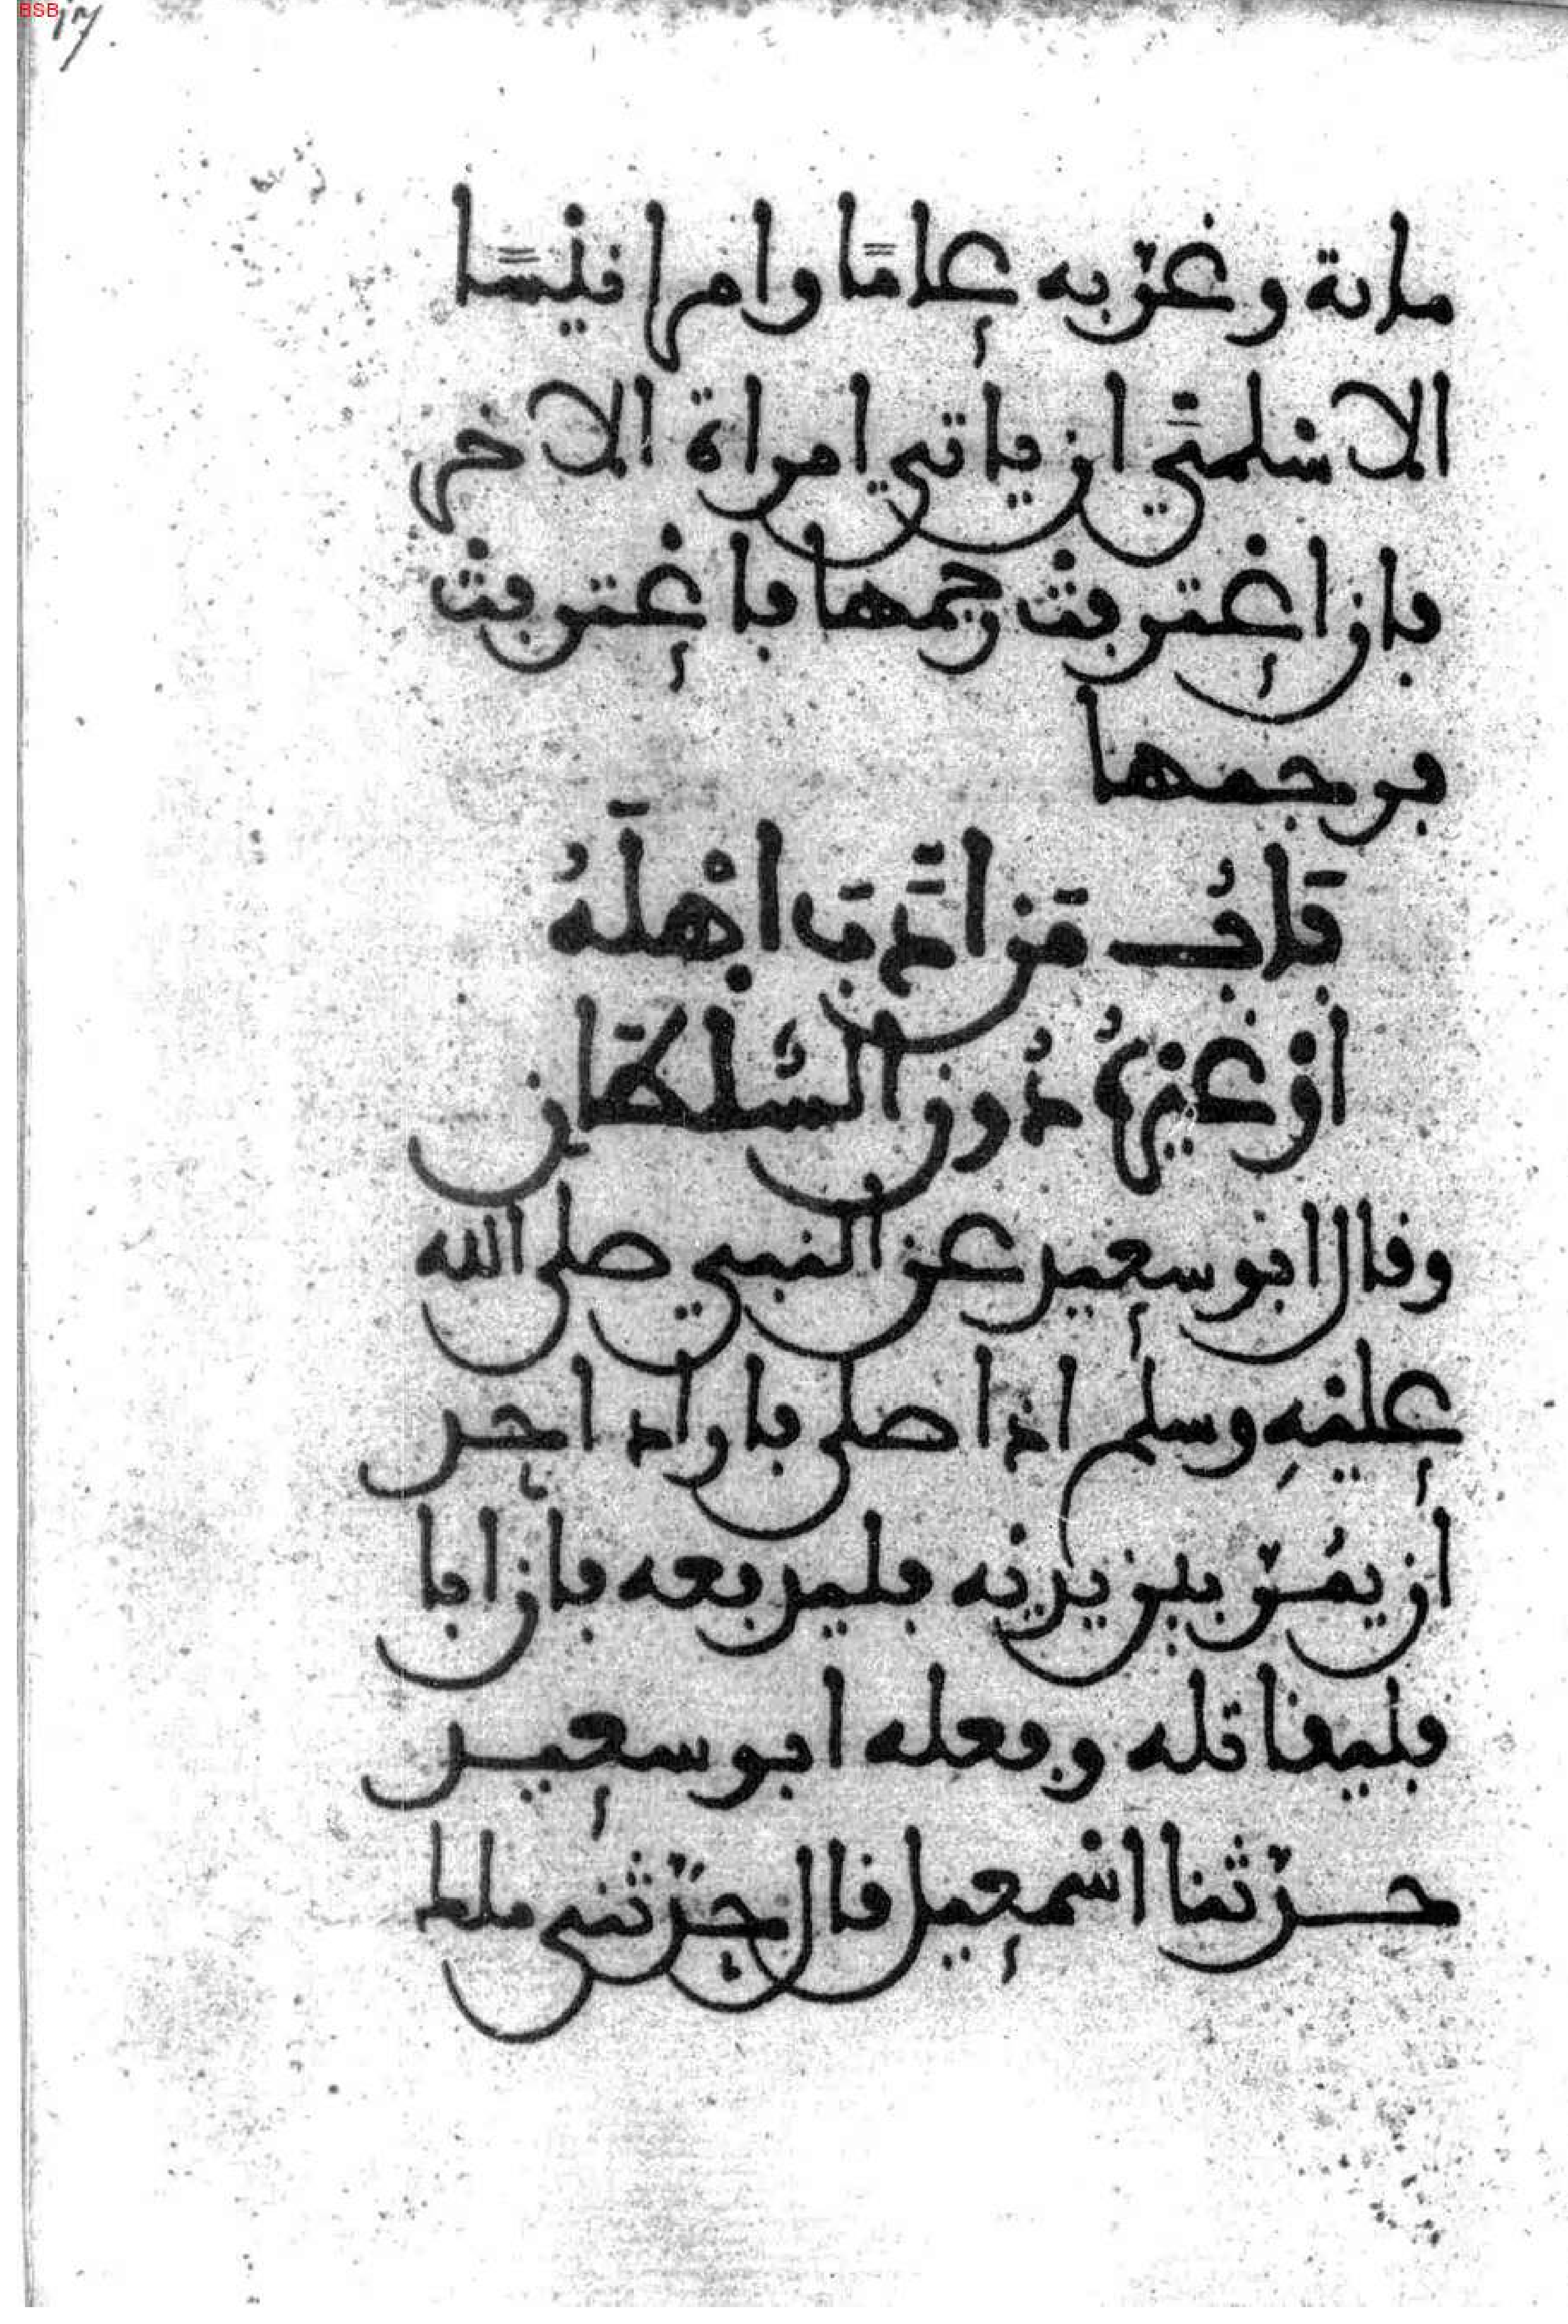 BSB
17.
مائة وغرّبه عامًا وامر انيسًا
الاسلميّ ان ياتي امراة الاخر
فان اعترفت رجمها فاعترفت
فرجمها
بَابُ مَن ادَّبَ اهْلَهُ
اوْ غَيْرَهُ دُونَ السُّلطَان
وقال ابو سعيد عن النبي صلى الله
عليْهِ وسلم اذا صلى فاراد احد
ان يمُرّ بين يديْه فليدفعه فان ابا
فليقاتله وفعله ابو سعيد
حدّثنا اسْمعيل قال حدّثني ملك